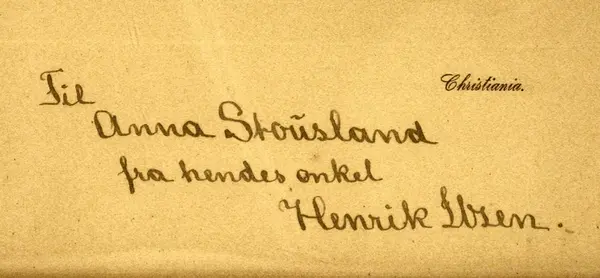 Christiania.
Til
Anna Stoŭsland
fra hendes onkel
Henrik Ibsen.